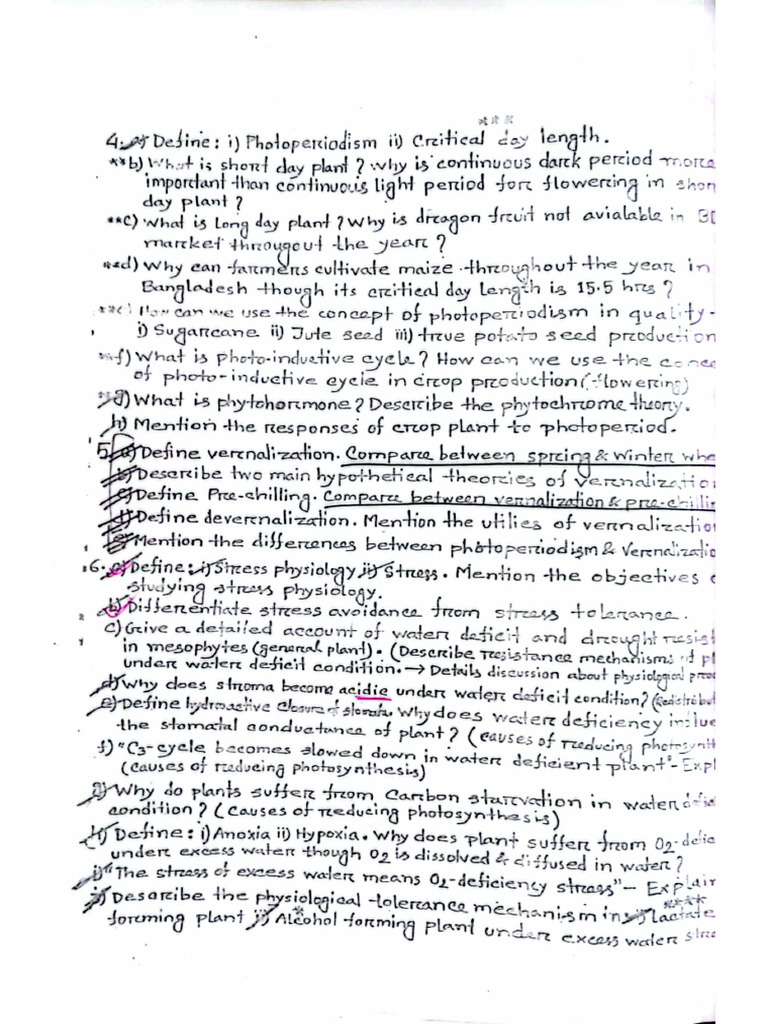 ***
4. a) Define: i) Photoperiodism ii) Critical day length.
**b) What is short day plant? Why is continuous dark period more
important than continuous light period for flowering in shor
day plant?
**c) What is long day plant? Why is dragon fruit not avialable in BD
market througout the year?
**d) Why can farmers cultivate maize throughout the year in
Bangladesh though its critical day length is 15.5 hrs?
**e) How can we use the concept of photoperiodism in quality-
i) Sugarcane ii) Jute seed iii) true potato seed production
**f) What is photo-inductive cycle? How can we use the conce
of photo-inductive cycle in crop production (flowering)
**g) What is phytohormone? Describe the phytochrome theory.
h) Mention the responses of crop plant to photoperiod.
5. a) Define vernalization. Compare between spring & Winter whe
b) Describe two main hypothetical theories of vernalizatio
c) Define Pre-chilling. Compare between vernalization & pre-chilli
d) Define devernalization. Mention the utilies of vernalization
e) Mention the differences between photoperiodism & Vernalizatio
6. a) Define: i) Stress physiology ii) Stress. Mention the objectives o
studying stress physiology.
b) Differentiate stress avoidance from stress tolerance.
c) Give a detailed account of water deficit and drought resist
in mesophytes (general plant). (Describe resistance mechanisms of pl
under water deficit condition. → Details discussion about physiological proc
d) Why does stroma become acidic under water deficit condition? (Redistribut
e) Define hydroactive closure of stomata. Why does water deficiency influe
the stomatal conductance of plant? (causes of reducing photosynth
f) "C3-cycle becomes slowed down in water deficient plant"- Expl
(causes of reducing photosynthesis)
g) Why do plants suffer from Carbon starvation in water defic
condition? (causes of reducing photosynthesis)
h) Define: i) Anoxia ii) Hypoxia. Why does plant suffer from O2-defic
under excess water though O2 is dissolved & diffused in water?
i) "The stress of excess water means O2-deficiency stress"- Explain
****
j) Describe the physiological tolerance mechanism in i) lactate
forming plant ii) Alcohol forming plant under excess water stre